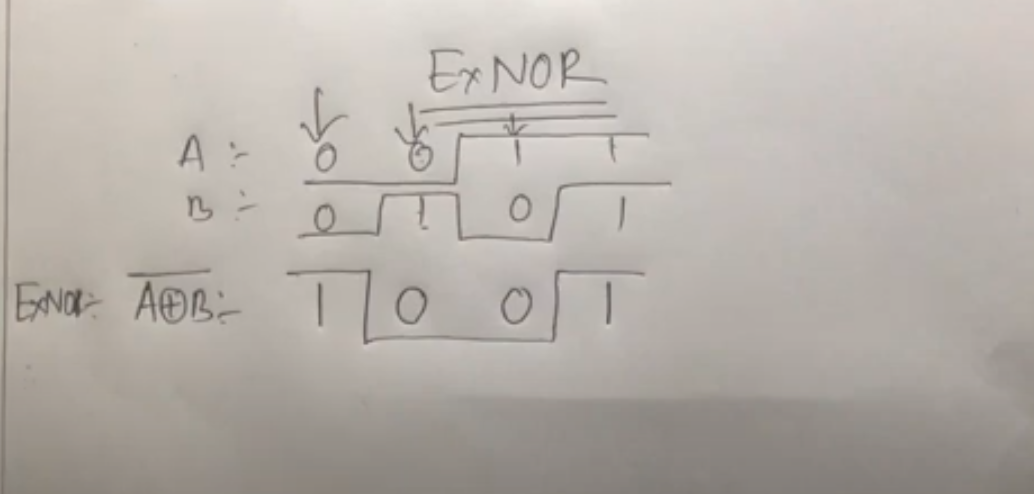 ExNOR
A :- 0 0 1 1
B :- 0 1 0 1
ExNOR:- A⊕B:- 1 0 0 1